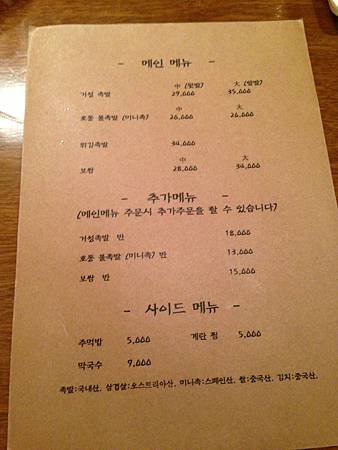 - 메인 메뉴 -
中 (뒷발) 大 (앞발)
거성 족발 29,000 35,000
中 大
호동 불족발 (미니족) 26,000 26,000
튀김족발 34,000
中 大
보쌈 28,000 34,000
- 추가메뉴 -
(메인메뉴 주문시 추가주문을 할 수 있습니다)
거성족발 반 18,000
호동 불족발 (미니족) 반 13,000
보쌈 반 15,000
- 사이드 메뉴 -
주먹밥 5,000 계란 찜 5,000
막국수 7,000
족발:국내산, 삼겹살:오스트리아산, 미니족:스페인산, 쌀:중국산, 김치:중국산,